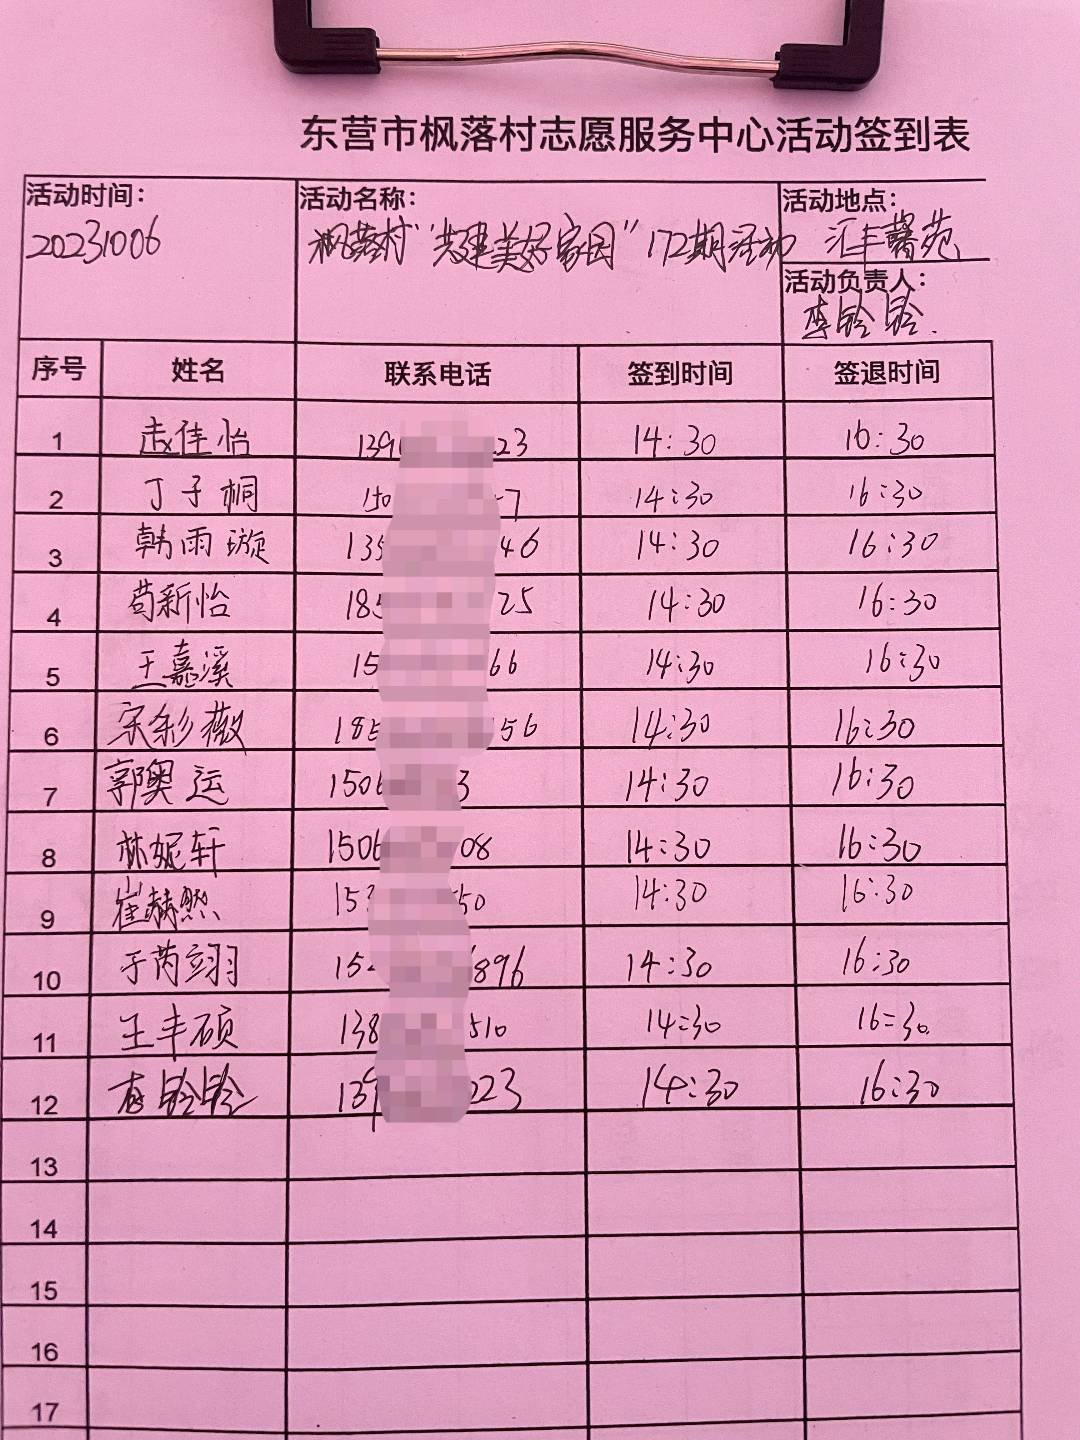 东营市枫落村志愿服务中心活动签到表
活动时间： 活动名称： 活动地点：
20231006 枫落村“共建美好家园”172期活动 汇丰馨苑
活动负责人：
李铃铃.
序号 姓名 联系电话 签到时间 签退时间
1 赵佳怡 139 23 14:30 16:30
2 丁子桐 150 7 14:30 16:30
3 韩雨漩 135 46 14:30 16:30
4 荀新怡 185 25 14:30 16:30
5 王嘉溪 15 66 14:30 16:30
6 宋彩薇 185 156 14:30 16:30
7 郭奥运 1506 3 14:30 16:30
8 林妮轩 1506 08 14:30 16:30
9 崔赫然 153 50 14:30 16:30
10 于芮翊 152 896 14:30 16:30
11 王丰硕 138 510 14:30 16:30
12 李铃铃 139 223 14:30 16:30
13
14
15
16
17